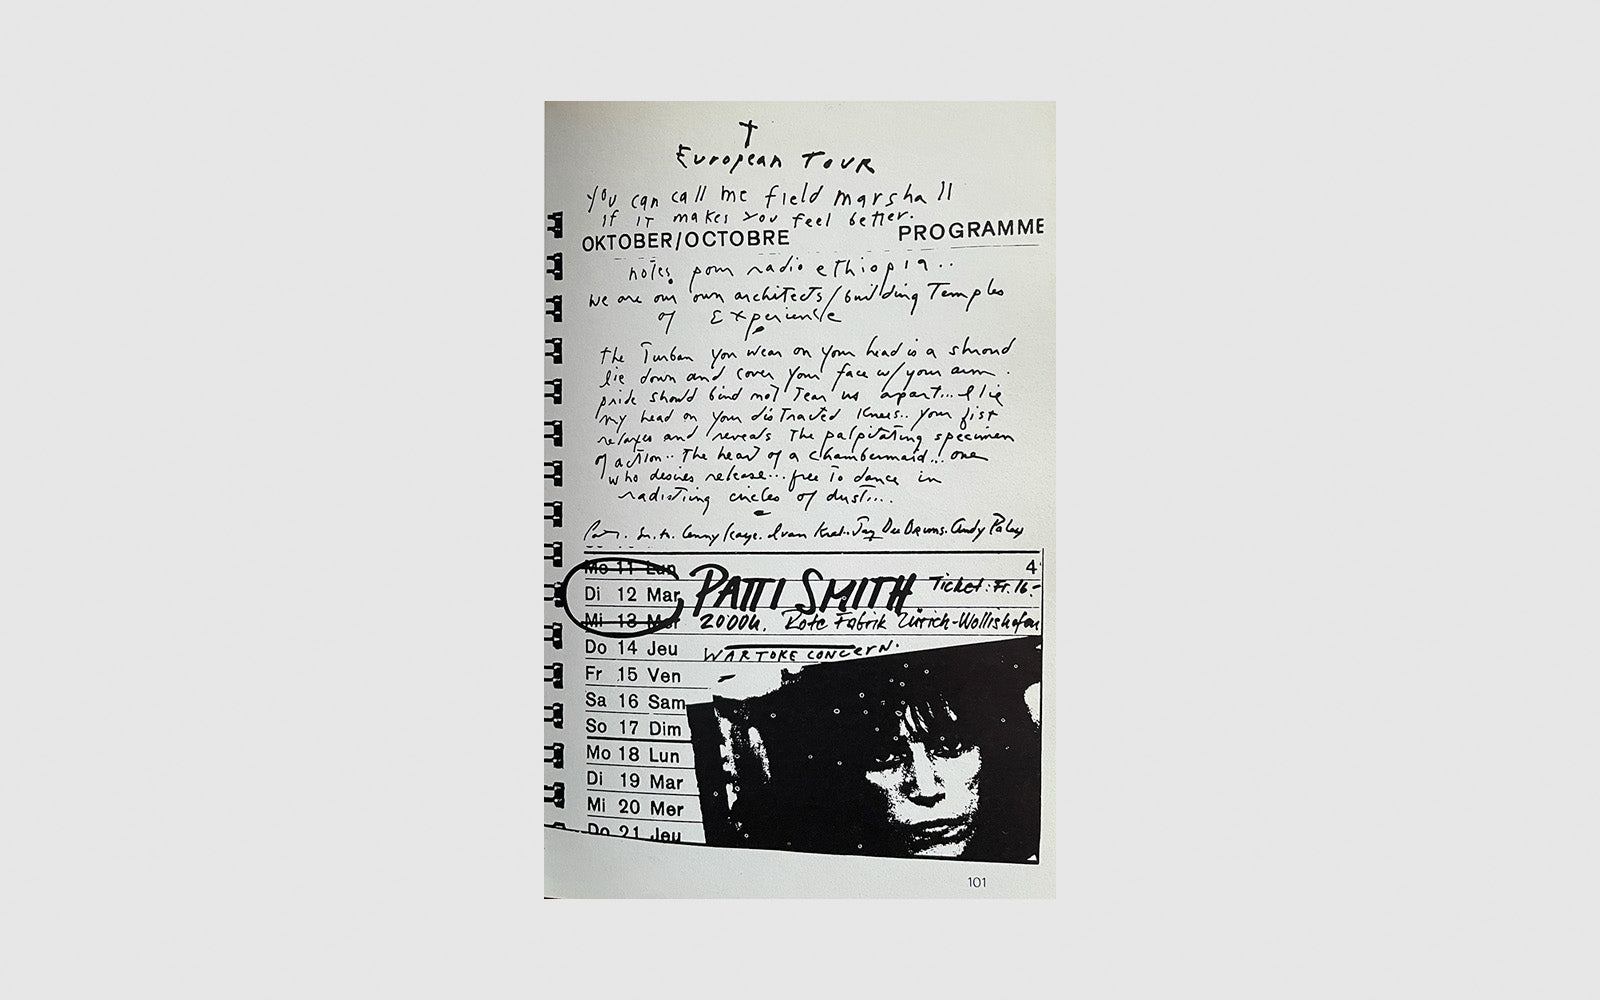 European TOUR
you can call me field marshall
if it makes you feel better.
OKTOBER/OCTOBRE PROGRAMME
notes pour radio ethiopia..
we are our own architects/building Temples
of Experience
the Turban you wear on your head is a shroud
lie down and cover your face w/your arm.
pride should bind not Tear us apart... I lie
my head on your distracted knees.. your fist
relaxes and reveals the palpitating specimen
of action.. the heart of a chambermaid... one
who desires release... free to dance in
radiating circles of dust....
Lenny Kaye. Ivan Kral. Jay Dee Drums. Andy Paley
Mo 11 Lun 4
Di 12 Mar PATTI SMITH Ticket: Fr. 16.-
Mi 13 Mer 2000h. Rote Fabrik Zürich-Wollishofen
Do 14 Jeu WARTOKE CONCERN.
Fr 15 Ven
Sa 16 Sam
So 17 Dim
Mo 18 Lun
Di 19 Mar
Mi 20 Mer
Do 21 Jeu
101